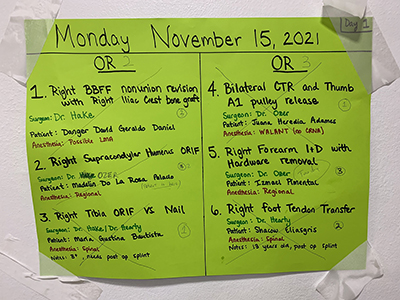 Day 1
Monday November 15, 2021
OR 2
1. Right BBFF nonunion revision
with Right Iliac Crest bone graft
Surgeon: Dr. Hake
Patient: Danger David Geraldo Daniel
Anesthesia: Possible LMA
2. Right Supracondylar Humerus ORIF
Surgeon: Dr. OZER
Patient: Madelin De La Rosa Palacio
Anesthesia: Regional
3. Right Tibia ORIF vs Nail
Surgeon: Dr. Hake/Dr. Hearty
Patient: Maria Giustina Bautista
Anesthesia: Spinal
Notes: needs post op splint
OR 3
4. Bilateral CTR and Thumb
A1 pulley release
Surgeon: Dr. Ozer
Patient: Juana Heredia Adames
Anesthesia: WALANT (no CRNA)
5. Right Forearm I+D with
Hardware removal
Surgeon: Dr. Ozer
Patient: Ismael Pimental
Anesthesia: Regional
6. Right foot Tendon Transfer
Surgeon: Dr. Hearty
Patient: Shacou Eliasgris
Anesthesia: Spinal
Notes: 18 years old, post op splint
2